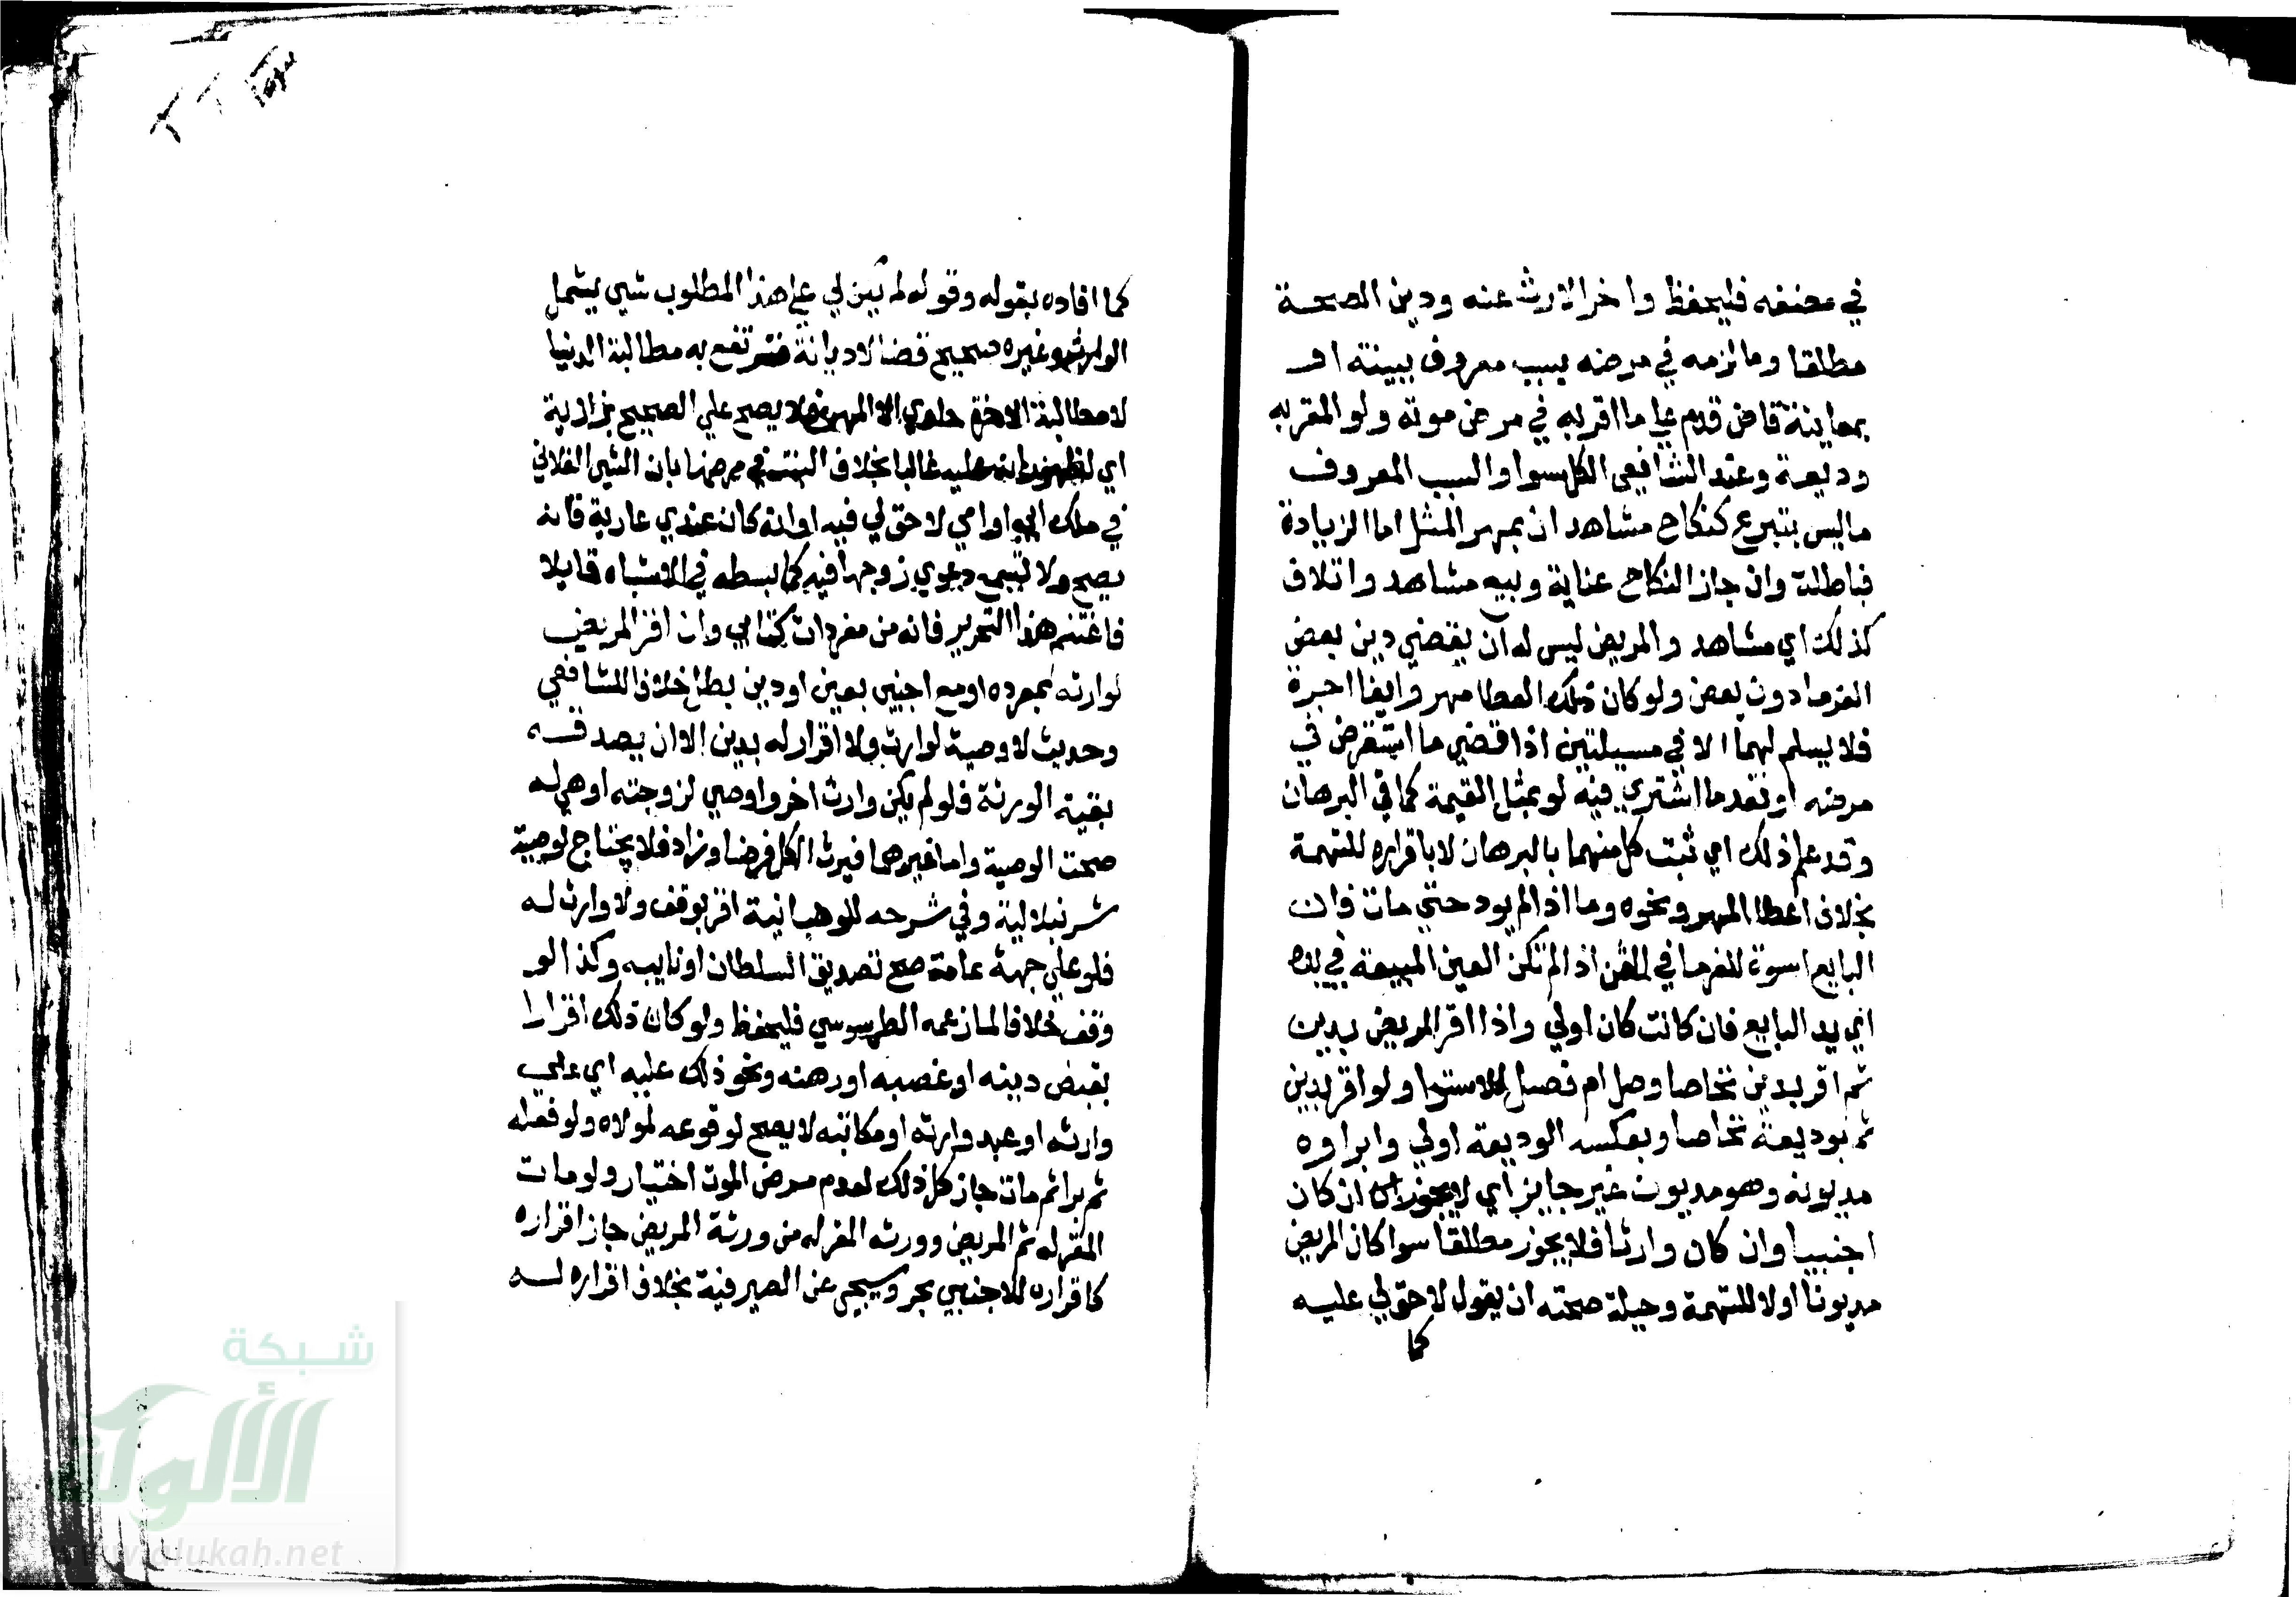 في مصنفه فليحفظ واخر الارث عنه ودين الصحة
مطلقا وما لزمه في مرضه بسبب معروف ببينة او
بمعاينة قاض قدم علي ما اقر به في مرض موته ولو المقر به
وديعة وعند الشافعي الكل سوا والسبب المعروف
ماليس بتبرع كنكاح مشاهد ان بمهر المثل اما الزيادة
فباطلة وان جاز النكاح عناية وبيع مشاهد واتلاف
كذلك اي مشاهد والمريض ليس له ان يقضي دين بعض
الغرما دون بعض ولو كان ذلك اعطا مهر وايفا اجرة
فلا يسلم لهما الا في مسيلتين اذا قضي ما استقرض في
مرضه او نقد ما اشتري فيه لو بمثل القيمة كما في البرهان
وقد علم ذلك اي ثبت كل منهما بالبرهان لا باقراره للتهمة
بخلاف اعطا المهر ونحوه وما اذا لم يود حتي مات فان
البايع اسوة للغرما في الثمن اذا لم تكن العين المبيعة في يده
اي يد البايع فان كانت كان اولي واذا اقر المريض بدين
ثم اقر بدين تحاصا وصل ام فصل للاستوا ولو اقر بدين
ثم بوديعة تحاصا وبعكسه الوديعة اولي وابراوه
مديونه وهو مديون غير جايز اي لا يجوز ان كان
اجنبيا وان كان وارثا فلا يجوز مطلقا سوا كان المريض
مديونا اولا للتهمة وحيلة صحته ان يقول لا حق لي عليه
كما
كما افاده بقوله وقوله لم يكن لي علي هذا المطلوب شي يشمل
الوارث وغيره صحيح قضا لا ديانة فترتفع به مطالبة الدنيا
لا مطالبة الاخرة حاوي الا المهر فلا يصح علي الصحيح بزازية
اي لظهور انه عليه غالبا بخلاف البنت في مرضها بان الشي الفلاني
في ملك ابي او امي لا حق لي فيه او انه كان عندي عارية فانه
يصح ولا تسمع دعوي زوجها فيه كما بسطه في الاشباه قايلا
فاغتنم هذا التحرير فانه من مفردات كتابي وان اقر المريض
لوارثه بمفرده او مع اجنبي بعين او دين بطل خلافا للشافعي
وحديث لا وصية لوارث ولا اقرار له بدين الا ان يصدقه
بقية الورثة فلو لم يكن وارث اخر واوصي لزوجته او هي له
صحت الوصية واما غيرهما فيرث الكل فرضا ورد فلا يحتاج لوصية
شرنبلالية وفي شرحه للوهبانية اقر بوقف ولا وارث له
فلو علي جهة عامة صح تصديق السلطان او نايبه وكذا لو
وقف خلافا لما زعمه الطرسوسي فليحفظ ولو كان ذلك اقرارا
بقبض دينه او غصبه او رهنه ونحو ذلك عليه اي علي
وارثه او عبد وارثه او مكاتبه لا يصح لوقوعه لمولاه ولو فعله
ثم برا ثم مات جاز كل ذلك لعدم مرض الموت اختيار ولو مات
المقر له ثم المريض وورثه المقر له من ورثة المريض جاز اقراره
كاقراره للاجنبي بحر وسيجي عن الصيرفية بخلاف اقراره له
شبكة
الألوكة
www.alukah.net